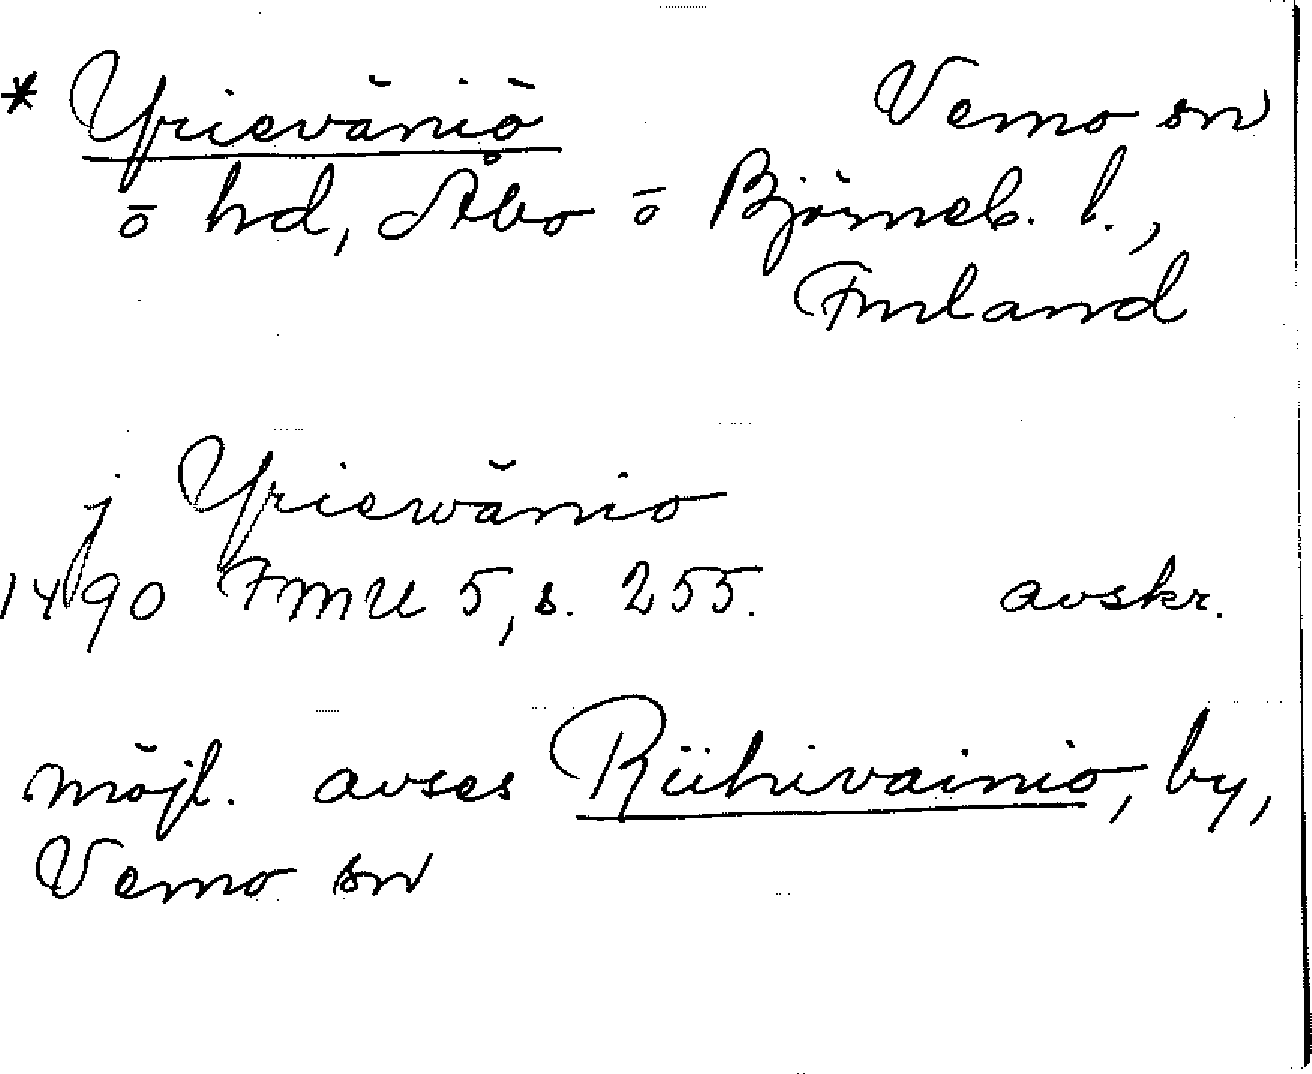 * Yrieväniö Vemo sn
ō hd, Åbo ō Björneb. l.,
Finland
j Yriewänio
1490 FMU 5, s. 255. avskr.
möjl. avses Riihivainio, by,
Vemo sn